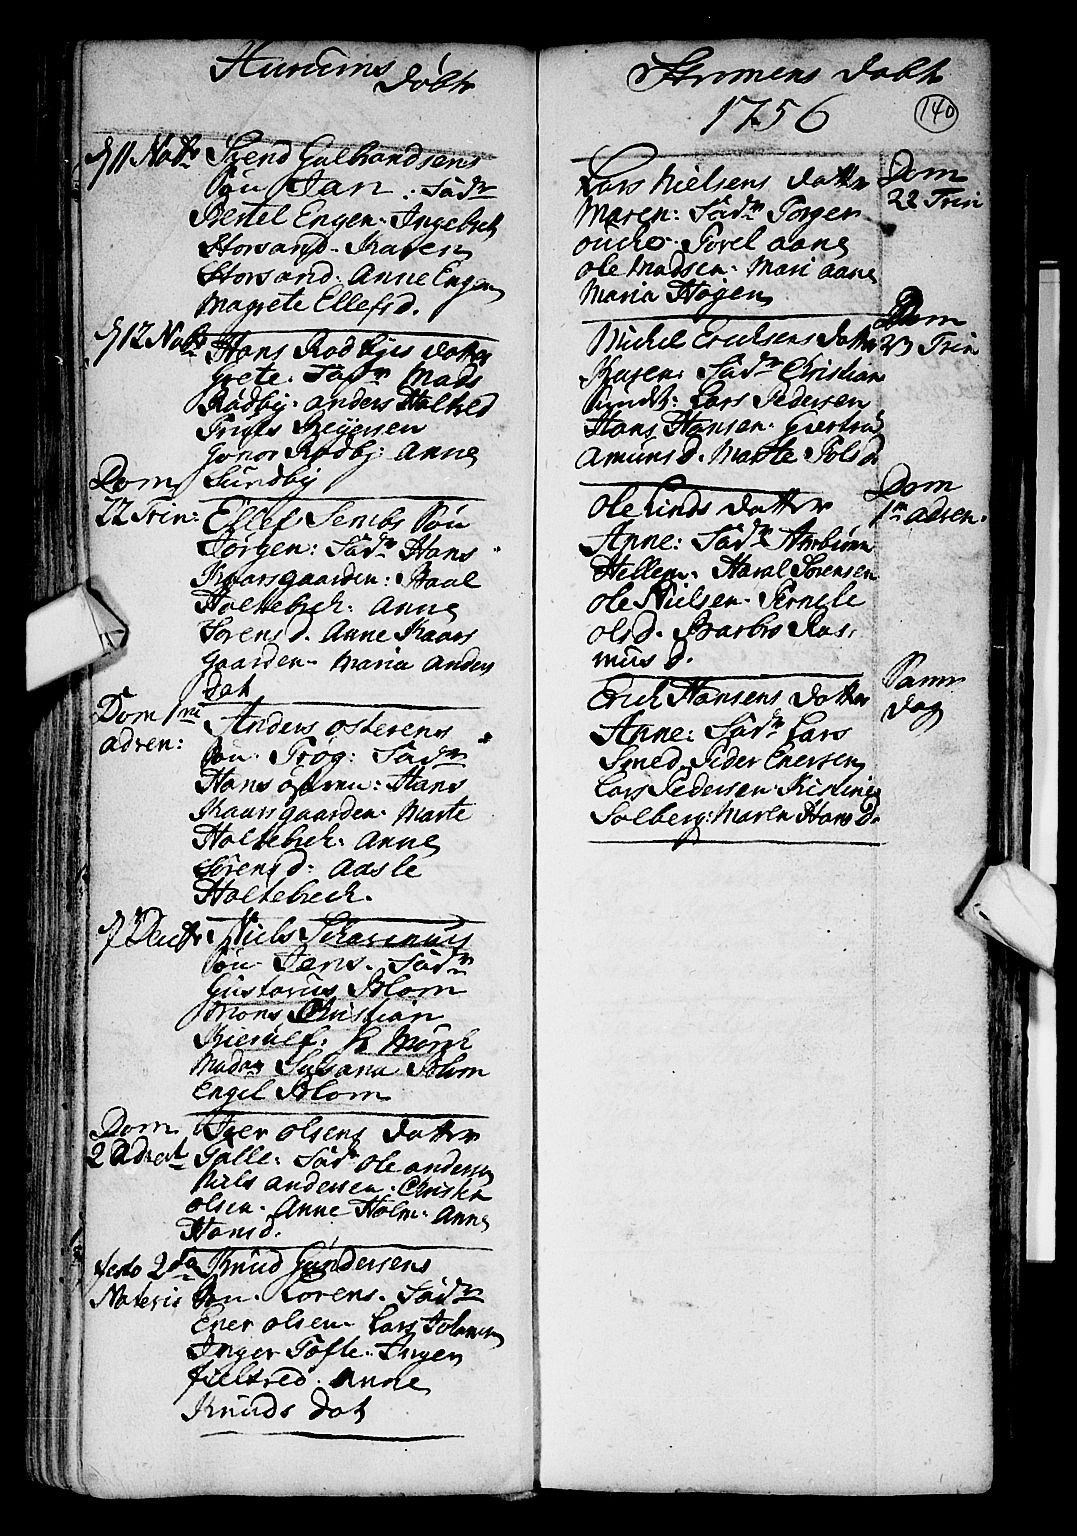 Hurums
døbte
d 11 Nov
Svend Gulbrandsens
søn Jan. Fadr
Bertel Engen. Ingebreth
Storsand. Karen
Storsand. Anne Engen
Magrete Ellefsd.
d 12 Nov
Hans Rødbyes datter
Grete. Fadr Mads
Rødby. anders Holted
Truls Regersen
Gonor Rødby. Anne
Sundby
Dom
22 Trin:
Ellef Sembs søn
Jørgen: Fadr Hans
Kaarsgaarden: Paal
Holtebech. Anne
Sørensd. Anne Kaars
gaarden. Maria Anders
dat
Dom 1mi
adven:
Anders østerens
søn Trog: Fadr
Hans østeren: Hans
Kaarsgaarden. Marte
Holtebech. Anne
Sørensd. Aasle
Holtebech.
d Dec
Niels
søn Jens. Fadr
Gustavus Blom
Mons Christian
Hr Mørch
Madm Susana Blom
Engel Blom
Dom
2 Advent
Iver olsens datter
Tølle: Fadr ole andersen
Niels andersen. Christen
olsen. Anne Holm. Anne
Hansd.
festo 2da
Natevis
Knud Gundersens
søn. Lorens. Fadr
Ener olsen. Lars Johansen
Inger Tofte. Inger
fieldsed. Anne
Knuds dat
Strømens døbte
1756
140
Dom
22 Trin
Lars Nielsens datter
Maren: Fadr Torger
Torel aane
ole Madsen. Mari aane
Maria Høgen
Dom
23 Trin
Michel Erichsens datter
Karen: Fadr Christian
Pundt: Lars Pedersen
Hans Hansen. Giertrud
Amunsd. Marte Polsd
Dom
1m adven.
Ole Linds datter
Anne: Fadr Anbiørn
Hellen. Haral Sørensen
Ole Nielsen. Pernele
olsd. Barbro Ras
mus d.
Samme
dag
Erich Hansens datter
Anne: Fadr Lars
Smed. Peder Enersen
Lars Pedersen. Kistine
Solberg: Maren Hans D.